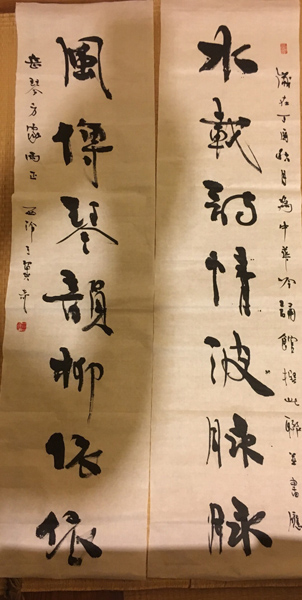 歲在丁酉秋月為中華吟誦館撰此聯並書應
水載詩情波脉脉
風傳琴韻柳依依
楚琴方家正